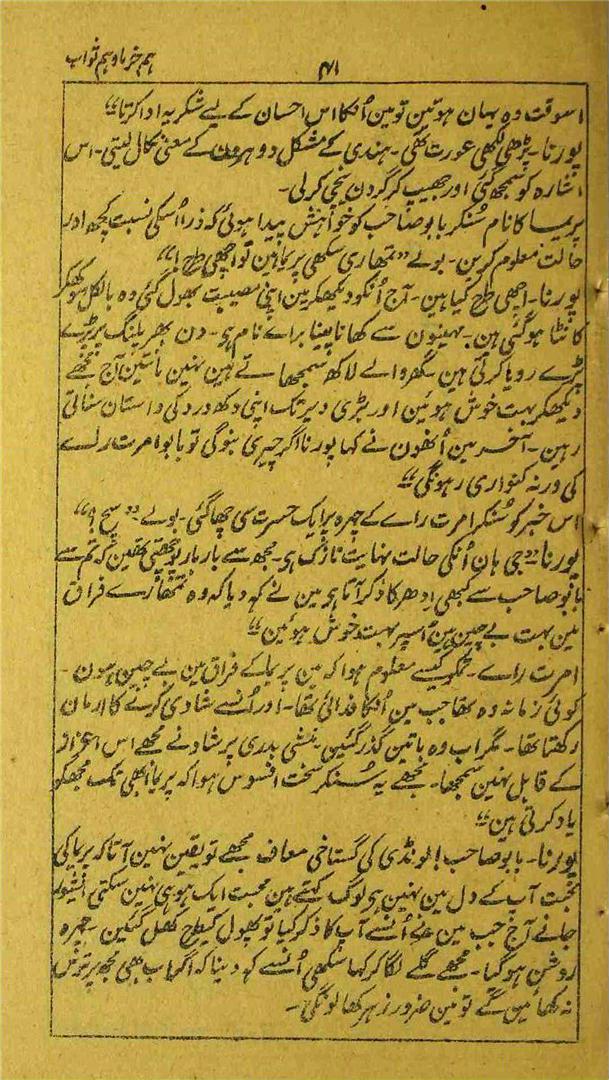 ہم خرما و ہم ثواب
۴۱
اسوقت وہ یہان ہوتین تو مین اُنکا اس احسان کے لیے شکریہ ادا کرتا“
پورنا۔ پڑھی لکھی عورت تھی۔ ہندی کے مشکل دوہرون کے معنی نکال لیتی۔ اس
اشارہ کو سمجھ گئی اور جھیپ کر گردن نیچی کر لی۔
پریما کا نام سُنکر بابو صاحب کو خواہش پیدا ہوئی کہ ذرا اُسکی نسبت کچھ اور
حالت معلوم کرین۔ بولے ”تمھاری سکھی پریما ہین تو اچھی طرح!“
پورنا۔ اچھی طرح کیا ہین۔ آج اُنکو دیکھکر مین اپنی مصیبت بھول گئی وہ بالکل سوکھکر
کانٹا ہو گئی ہین۔ مہینون سے کھانا پینا براے نام ہی۔ دن بھر پلنگ پر پڑے
پڑے رویا کرتی ہین گھر والے لاکھ سمجھاتے ہین نہین مانتین آج مجھے
دیکھکر بہت خوش ہوئین اور بڑی دیر تک اپنی دکھ درد کی داستان سناتی
رہین۔ آخر مین اُنھون نے کہا پورنا اگر چیری بنوگی تو بابو امرت راے
کی ورنہ کنواری رہونگی“
اس خبر کو سُنکر امرت راے کے چہرہ پر ایک حسرت سی چھا گئی۔ بولے۔ ”سچ؟“
پورنا ”جی ہان اُنکی حالت نہایت نازک ہی۔ مجھ سے بار بار پوچھتی تھین کہ تم سے
بابو صاحب سے کبھی ادھر کا ذکر آتا ہی مین نے کہہ دیا کہ وہ تمھارے فراق
مین بہت بے چین ہین اُسپر بہت خوش ہوئین“
امرت راے۔ تمکو کیسے معلوم ہوا کہ مین پریما کے فراق مین بے چین ہون۔
کوئی زمانہ وہ تھا جب مین اُنکا فدائی تھا۔ اور اُنسے شادی کرنے کا ارمان
رکھتا تھا۔ مگر اب وہ باتین گذر گئین۔ منشی بدری پرشاد نے مجھے اس اعزاز
کے قابل نہین سمجھا۔ مجھے یہ سُنکر سخت افسوس ہوا کہ پریما ابھی تک مجھکو
یاد کرتی ہین“
پورنا۔ بابو صاحب! لونڈی کی گستاخی معاف مجھے تو یقین نہین آتا کہ پریما کی
محبت آپ کے دل مین نہین ہی لوگ کہتے ہین محبت ایک ہو ہی نہین سکتی
جانے آج جب مین نے اُنسے آپ کا ذکر کیا تو پھول کیطرح کھل گئین۔ چہرہ
روشن ہو گیا۔ مجھے گلے لگا کر کہا سکھی اُنسے کہہ دینا کہ اگر اب بھی مجھ پر ترس
نہ کھائین گے تو مین ضرور زہر کھا لونگی۔